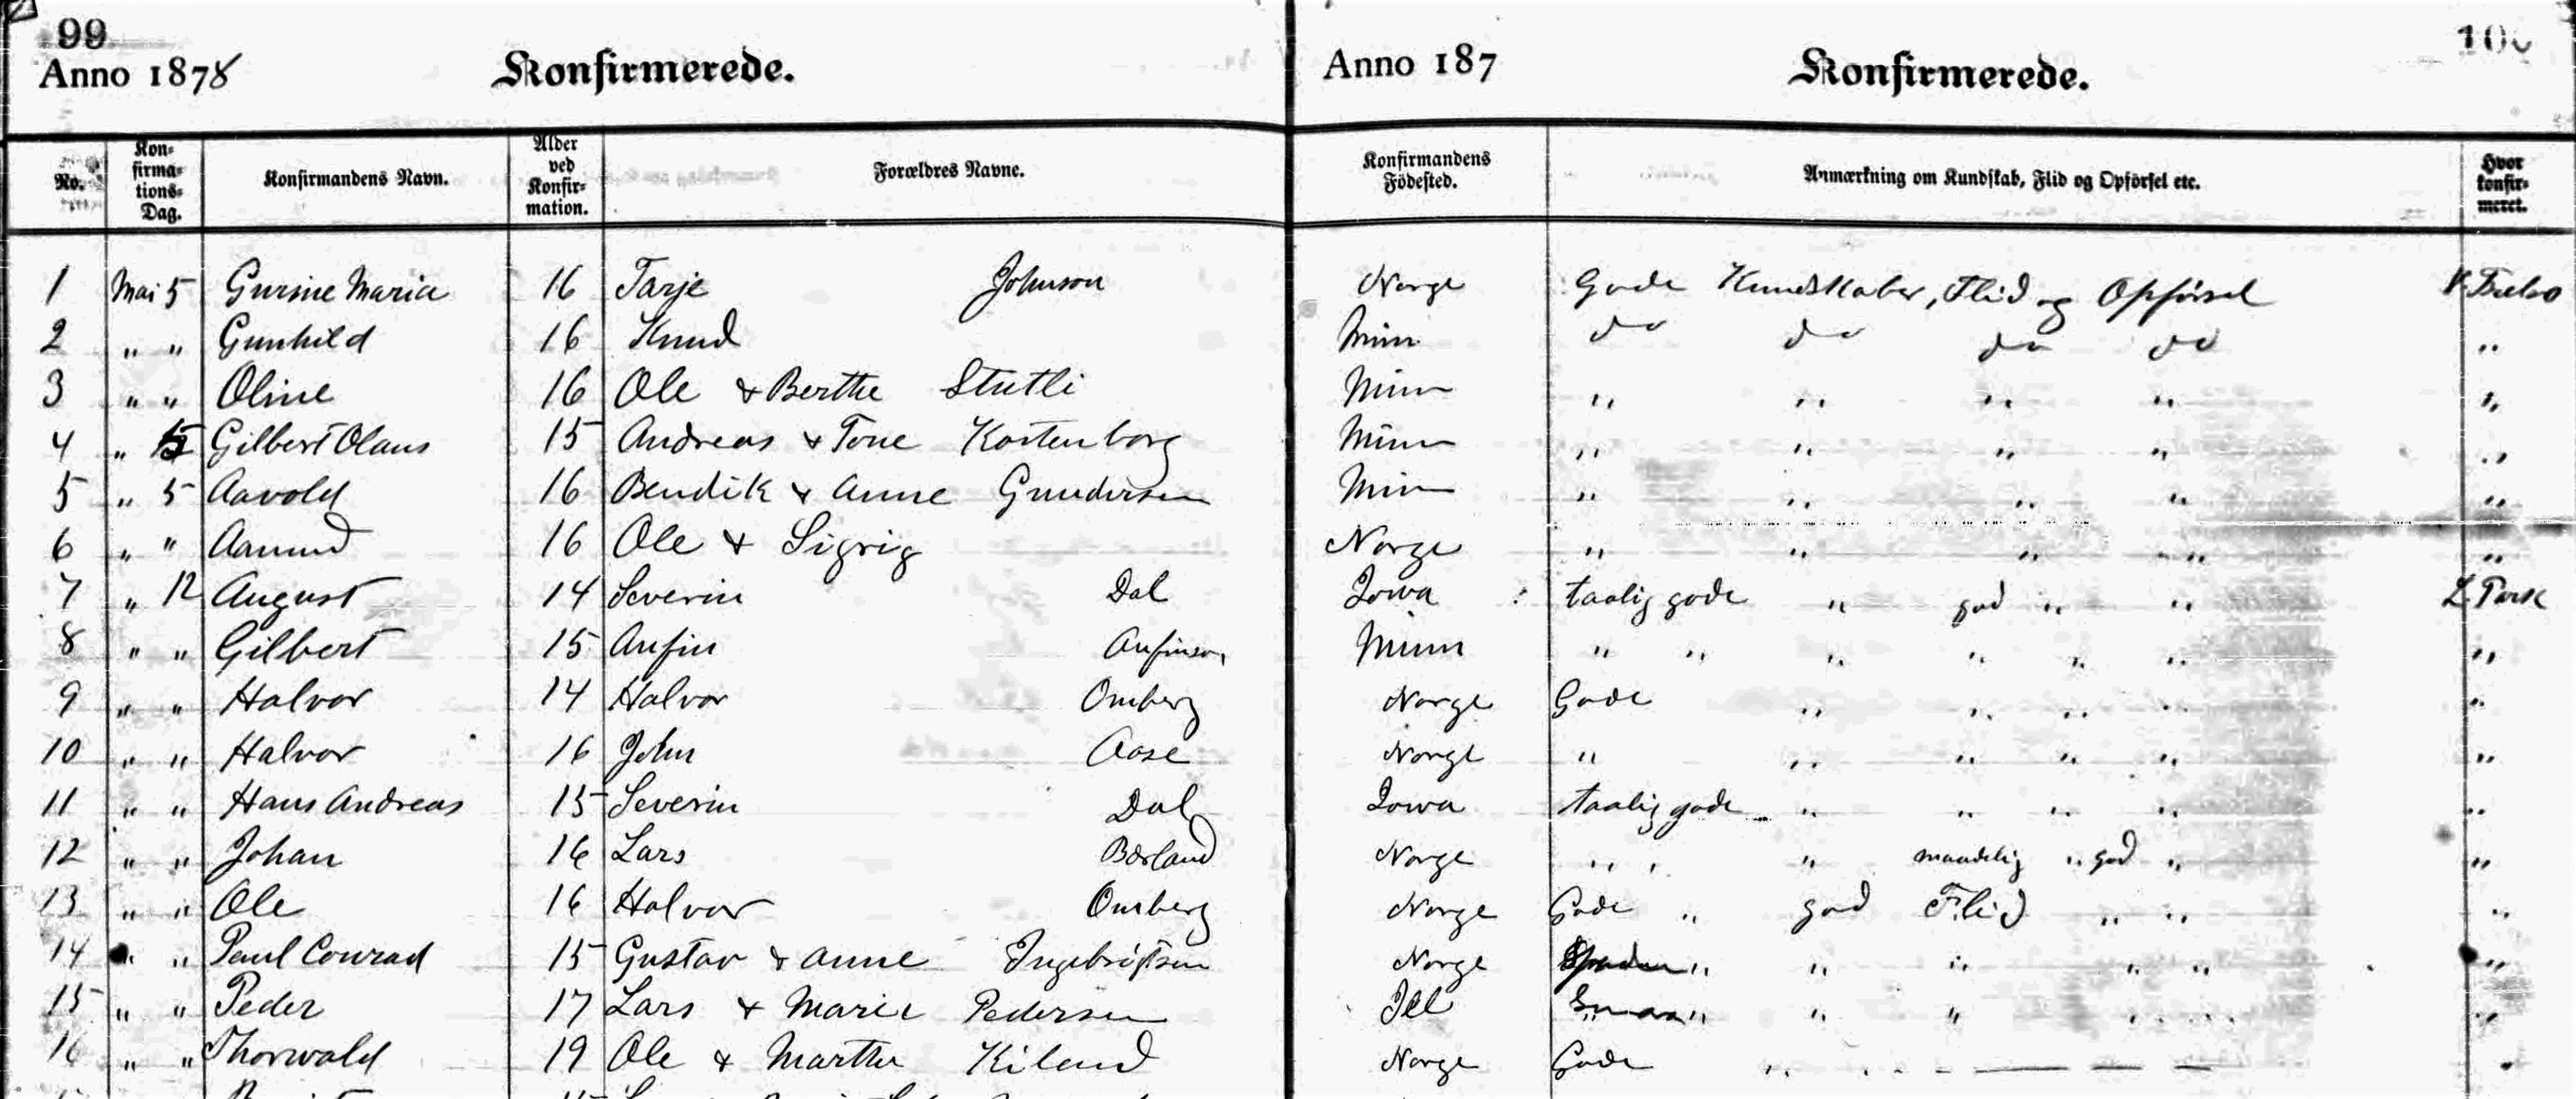 99
Anno 1878 Konfirmerede.
No. Kon-firma-tions-Dag. Konfirmandens Navn. Alder ved Konfir-mation. Forældres Navne.
1 Mai 5 Gurine Maria 16 Tarje Johnson
2 " " Gunhild 16 Knud
3 " " Oline 16 Ole & Berthe Stutli
4 " 5 Gilbert Olaus 15 Andreas & Tone Kortenborg
5 " 5 Aavold 16 Bendik & Anne Gundersen
6 " " Aamund 16 Ole & Sigrig
7 " 12 August 14 Severin Dal
8 " " Gilbert 15 Anfin Anfinson
9 " " Halvor 14 Halvor Omberg
10 " " Halvor 16 John Aase
11 " " Hans Andreas 15 Severin Dal
12 " " Johan 16 Lars
13 " " Ole 16 Halvor Omberg
14 " " Paul Conrad 15 Gustav & Anne Ingebrigtsen
15 " " Peder 17 Lars & Marie Pedersen
16 " " Thorwald 19 Ole & Marthe Kilend
Anno 187 Konfirmerede. 100
Konfirmandens Födested. Anmærkning om Kundskab, Flid og Opförsel etc. Hvor konfir-meret.
Norge Gode Kundskaber, Flid og Opförsel
Minn do do do do "
Minn " " " " "
Minn " " " " "
Minn " " " " "
Norge " " " " "
Iowa taalig gode " god " " L Park
Minn " " " " " " "
Norge Gode " " " " "
Norge " " " " " "
Iowa taalig gode " " " " "
Norge " " " maadelig " god " "
Norge Gode " god Flid " " "
Norge " " " " " "
Ill " " "
Norge Gode "